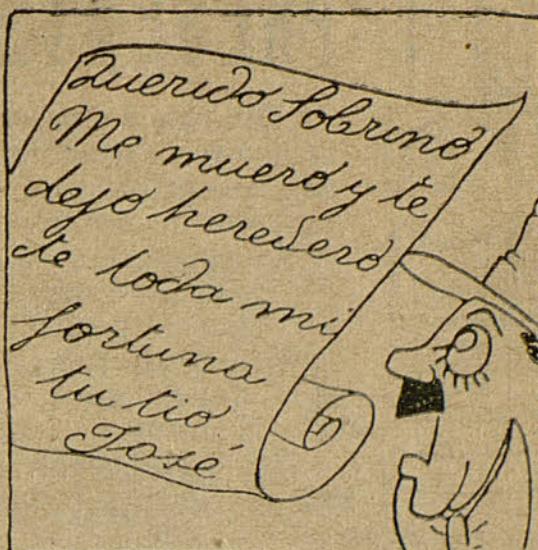 Querido Sobrino
Me muero y te
dejo heredero
de toda mi
fortuna
tu tio
José